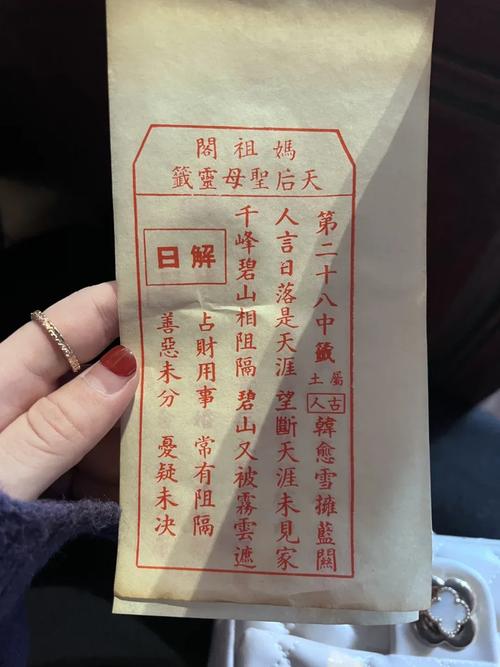 媽祖閣
天后聖母靈籤
第二十八中籤 屬土 古人 韓愈雪擁藍關
人言日落是天涯 望斷天涯未見家
千峰碧山相阻隔 碧山又被霧雲遮
解曰
占財用事 常有阻隔
善惡未分 憂疑未决